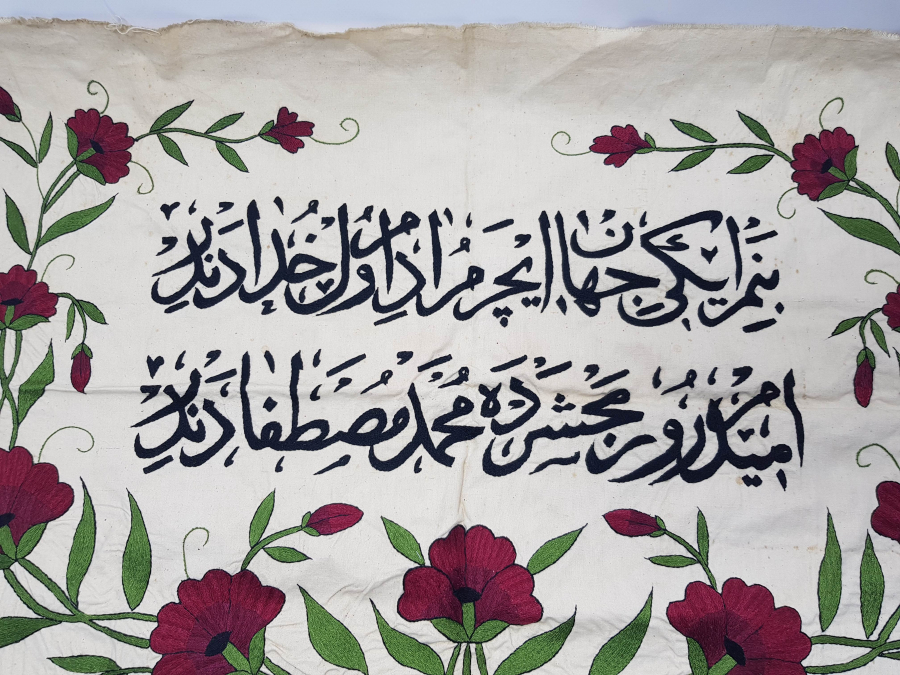 بنم ایکی جهان ایچره مرادم اول خدادندر
امیدم روز محشرده محمد مصطفادندر